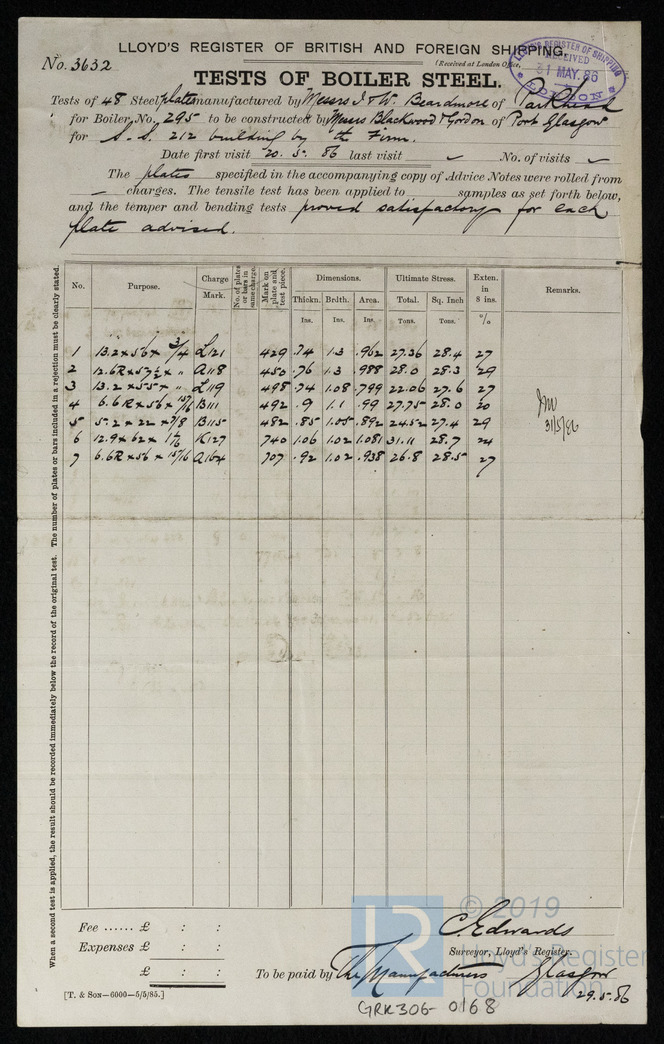 LLOYD'S REGISTER OF BRITISH AND FOREIGN SHIPPING.
No. 3632
(Received at London Office,
LLOYD'S REGISTER OF SHIPPING RECEIVED 31 MAY. 86 LONDON
TESTS OF BOILER STEEL.
Tests of 48 Steel plates manufactured by Messrs I & W. Beardmore of Parkhead
for Boiler, No, 295 to be constructed by Messrs Blackwood & Gordon of Port Glasgow
for S.S. 212 building by th Firm.
Date first visit 20. 5. 86 last visit No. of visits
The plates specified in the accompanying copy of Advice Notes were rolled from
— charges. The tensile test has been applied to samples as set forth below,
and the temper and bending tests proved satisfactory for each
plate advised.
No. Purpose. Charge Mark. No. of plates or bars in same charge. Mark on plate and test piece. Dimensions. Ultimate Stress. Exten. in 8 ins. Remarks.
Thickn. Brdth. Area. Total. Sq. Inch
Ins. Ins. Ins. Tons. Tons. %
1 13.2 x 56 x 3/4 L121 429 .74 1.3 .962 27.36 28.4 27
2 12.6R x 57½ x " A118 450 .76 1.3 .988 28.0 28.3 29
3 13.2 x 55 x " L119 498 .74 1.08 .799 22.06 27.6 27
4 6.6R x 56 x 15/16 B111 492 .9 1.1 .99 27.75 28.0 20
5 5.2 x 22 x 7/8 B115 482 .85 1.05 .892 24.52 27.4 29
6 12.9 x 62 x 1 1/16 K127 740 1.06 1.02 1.081 31.11 28.7 24
7 6.6R x 56 x 15/16 A164 707 .92 1.02 .938 26.8 28.5 27
31/5/86
When a second test is applied, the result should be recorded immediately below the record of the original test. The number of plates or bars included in a rejection must be clearly stated.
Fee ...... £ : :
Expenses £ : :
£ : :
C. Edwards
Surveyor, Lloyd's Register.
To be paid by The Manufacturers Glasgow
29.5.86
[T. & Son—6000—5/5/85.]
GRK306-0168
LR
© 2019
Lloyd's Register
Foundation